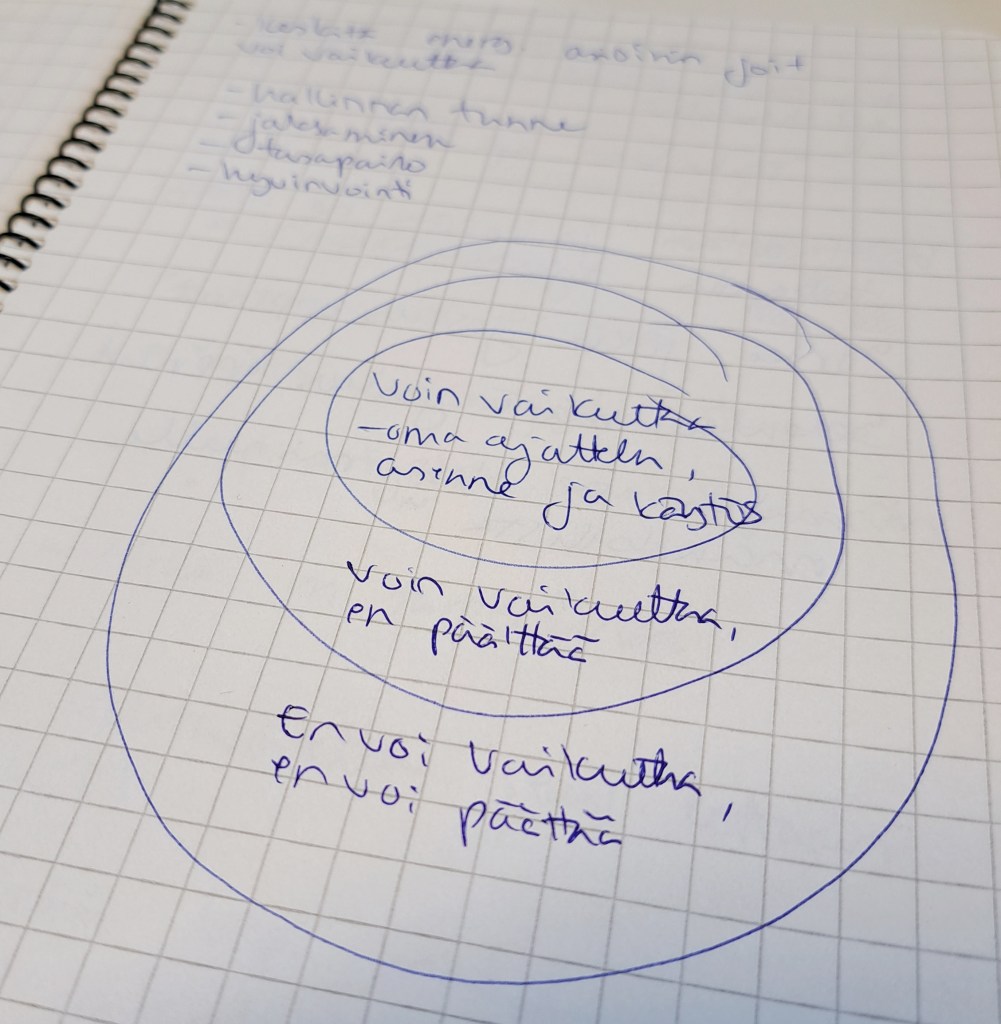 voi vaikuttaa
- hallinnan tunne
- jaksaminen
- tasapaino
- hyvinvointi
voin vaikuttaa
- oma ajattelu,
asenne ja käytös
voin vaikuttaa,
en päättää
En voi vaikuttaa,
en voi päättää